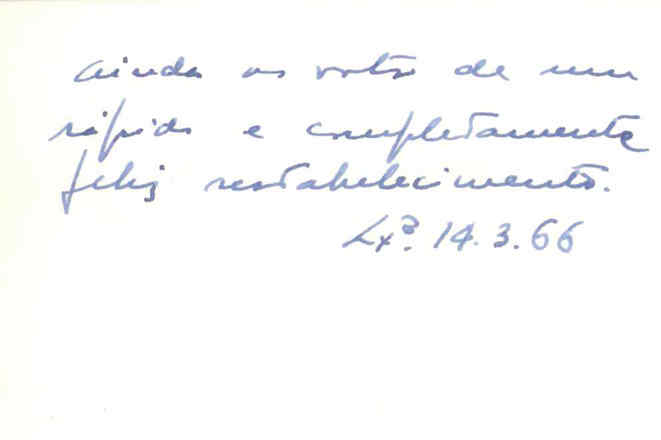 ainda os votos de um
rápido e completamente
feliz restabelecimento.
Lxª. 14.3.66